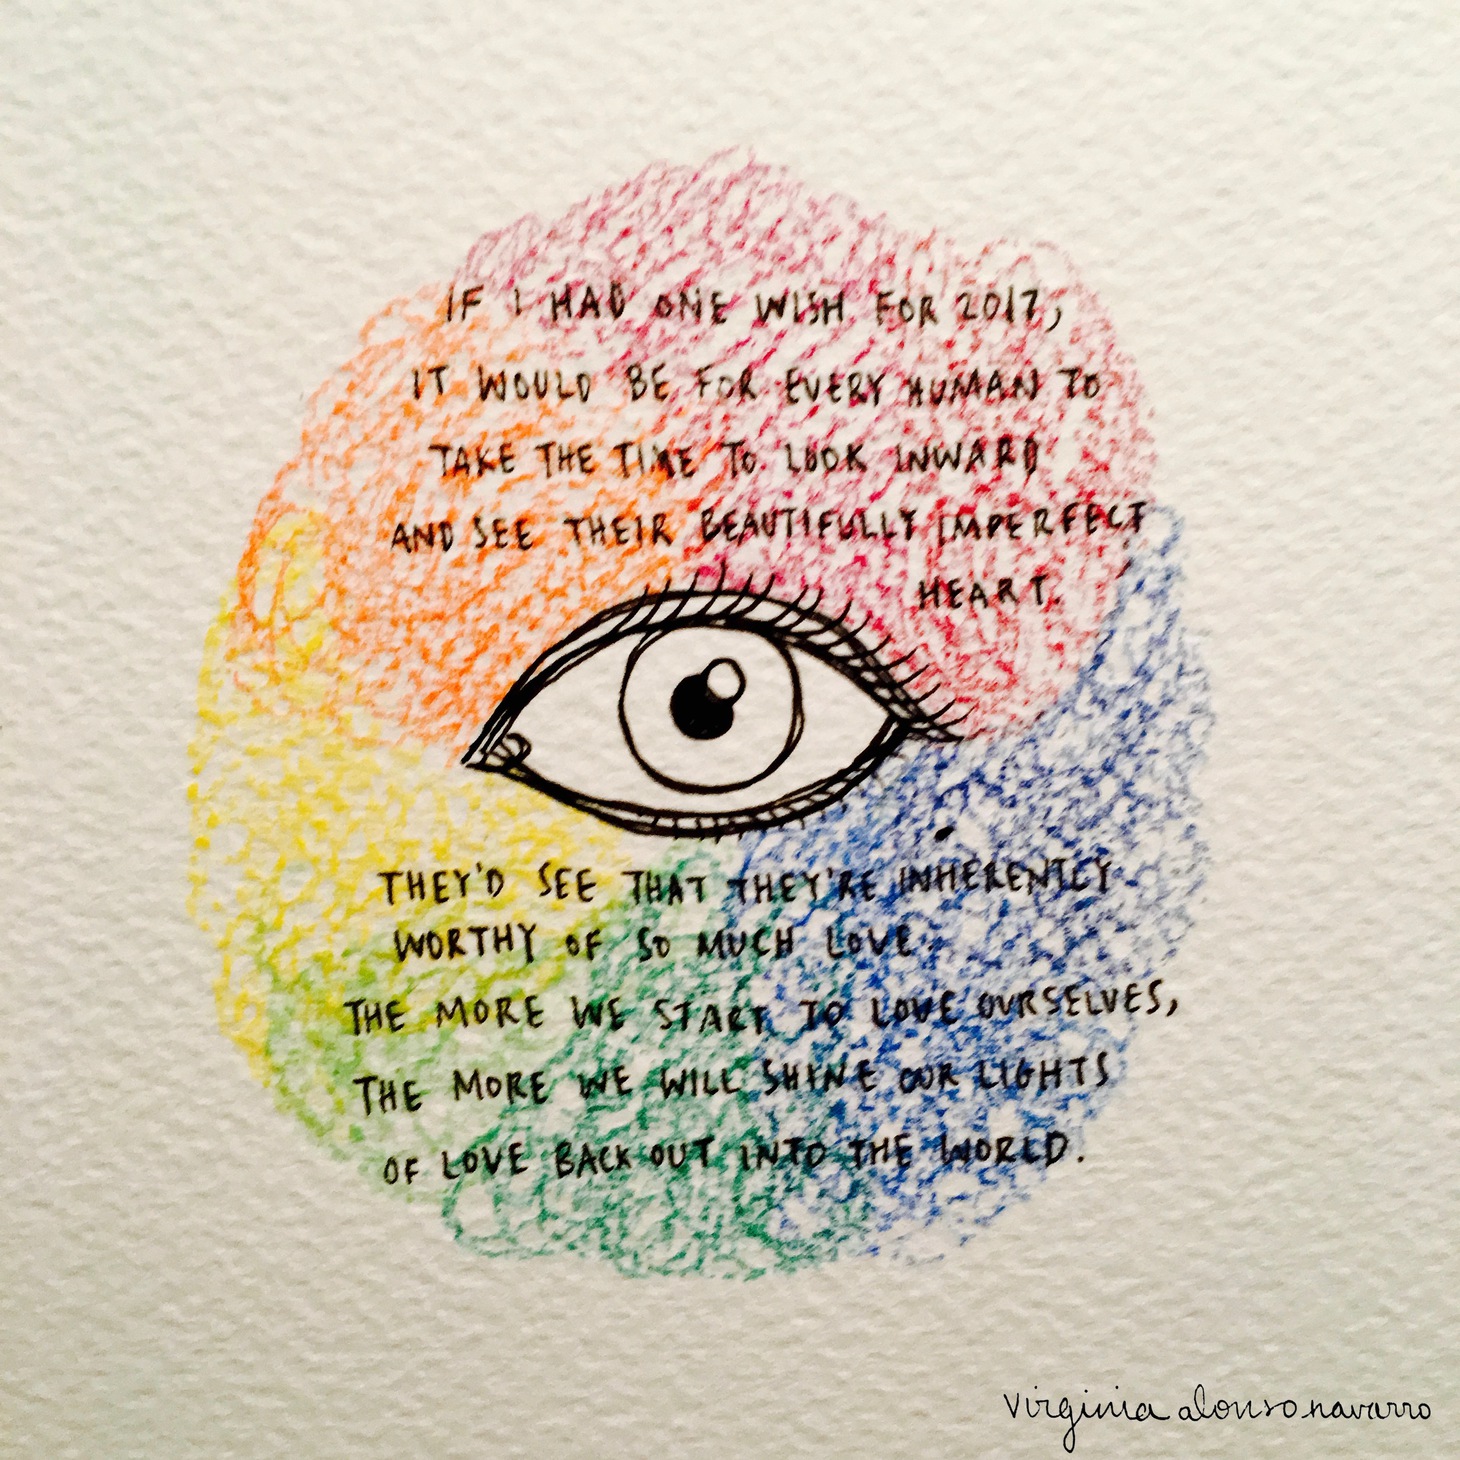 IF I HAD ONE WISH FOR 2017,
IT WOULD BE FOR EVERY HUMAN TO
TAKE THE TIME TO LOOK INWARD
AND SEE THEIR BEAUTIFULLY IMPERFECT
HEART.
THEY'D SEE THAT THEY'RE INHERENTLY
WORTHY OF SO MUCH LOVE.
THE MORE WE START TO LOVE OURSELVES,
THE MORE WE WILL SHINE OUR LIGHTS
OF LOVE BACK OUT INTO THE WORLD.
virginia alonso navarro